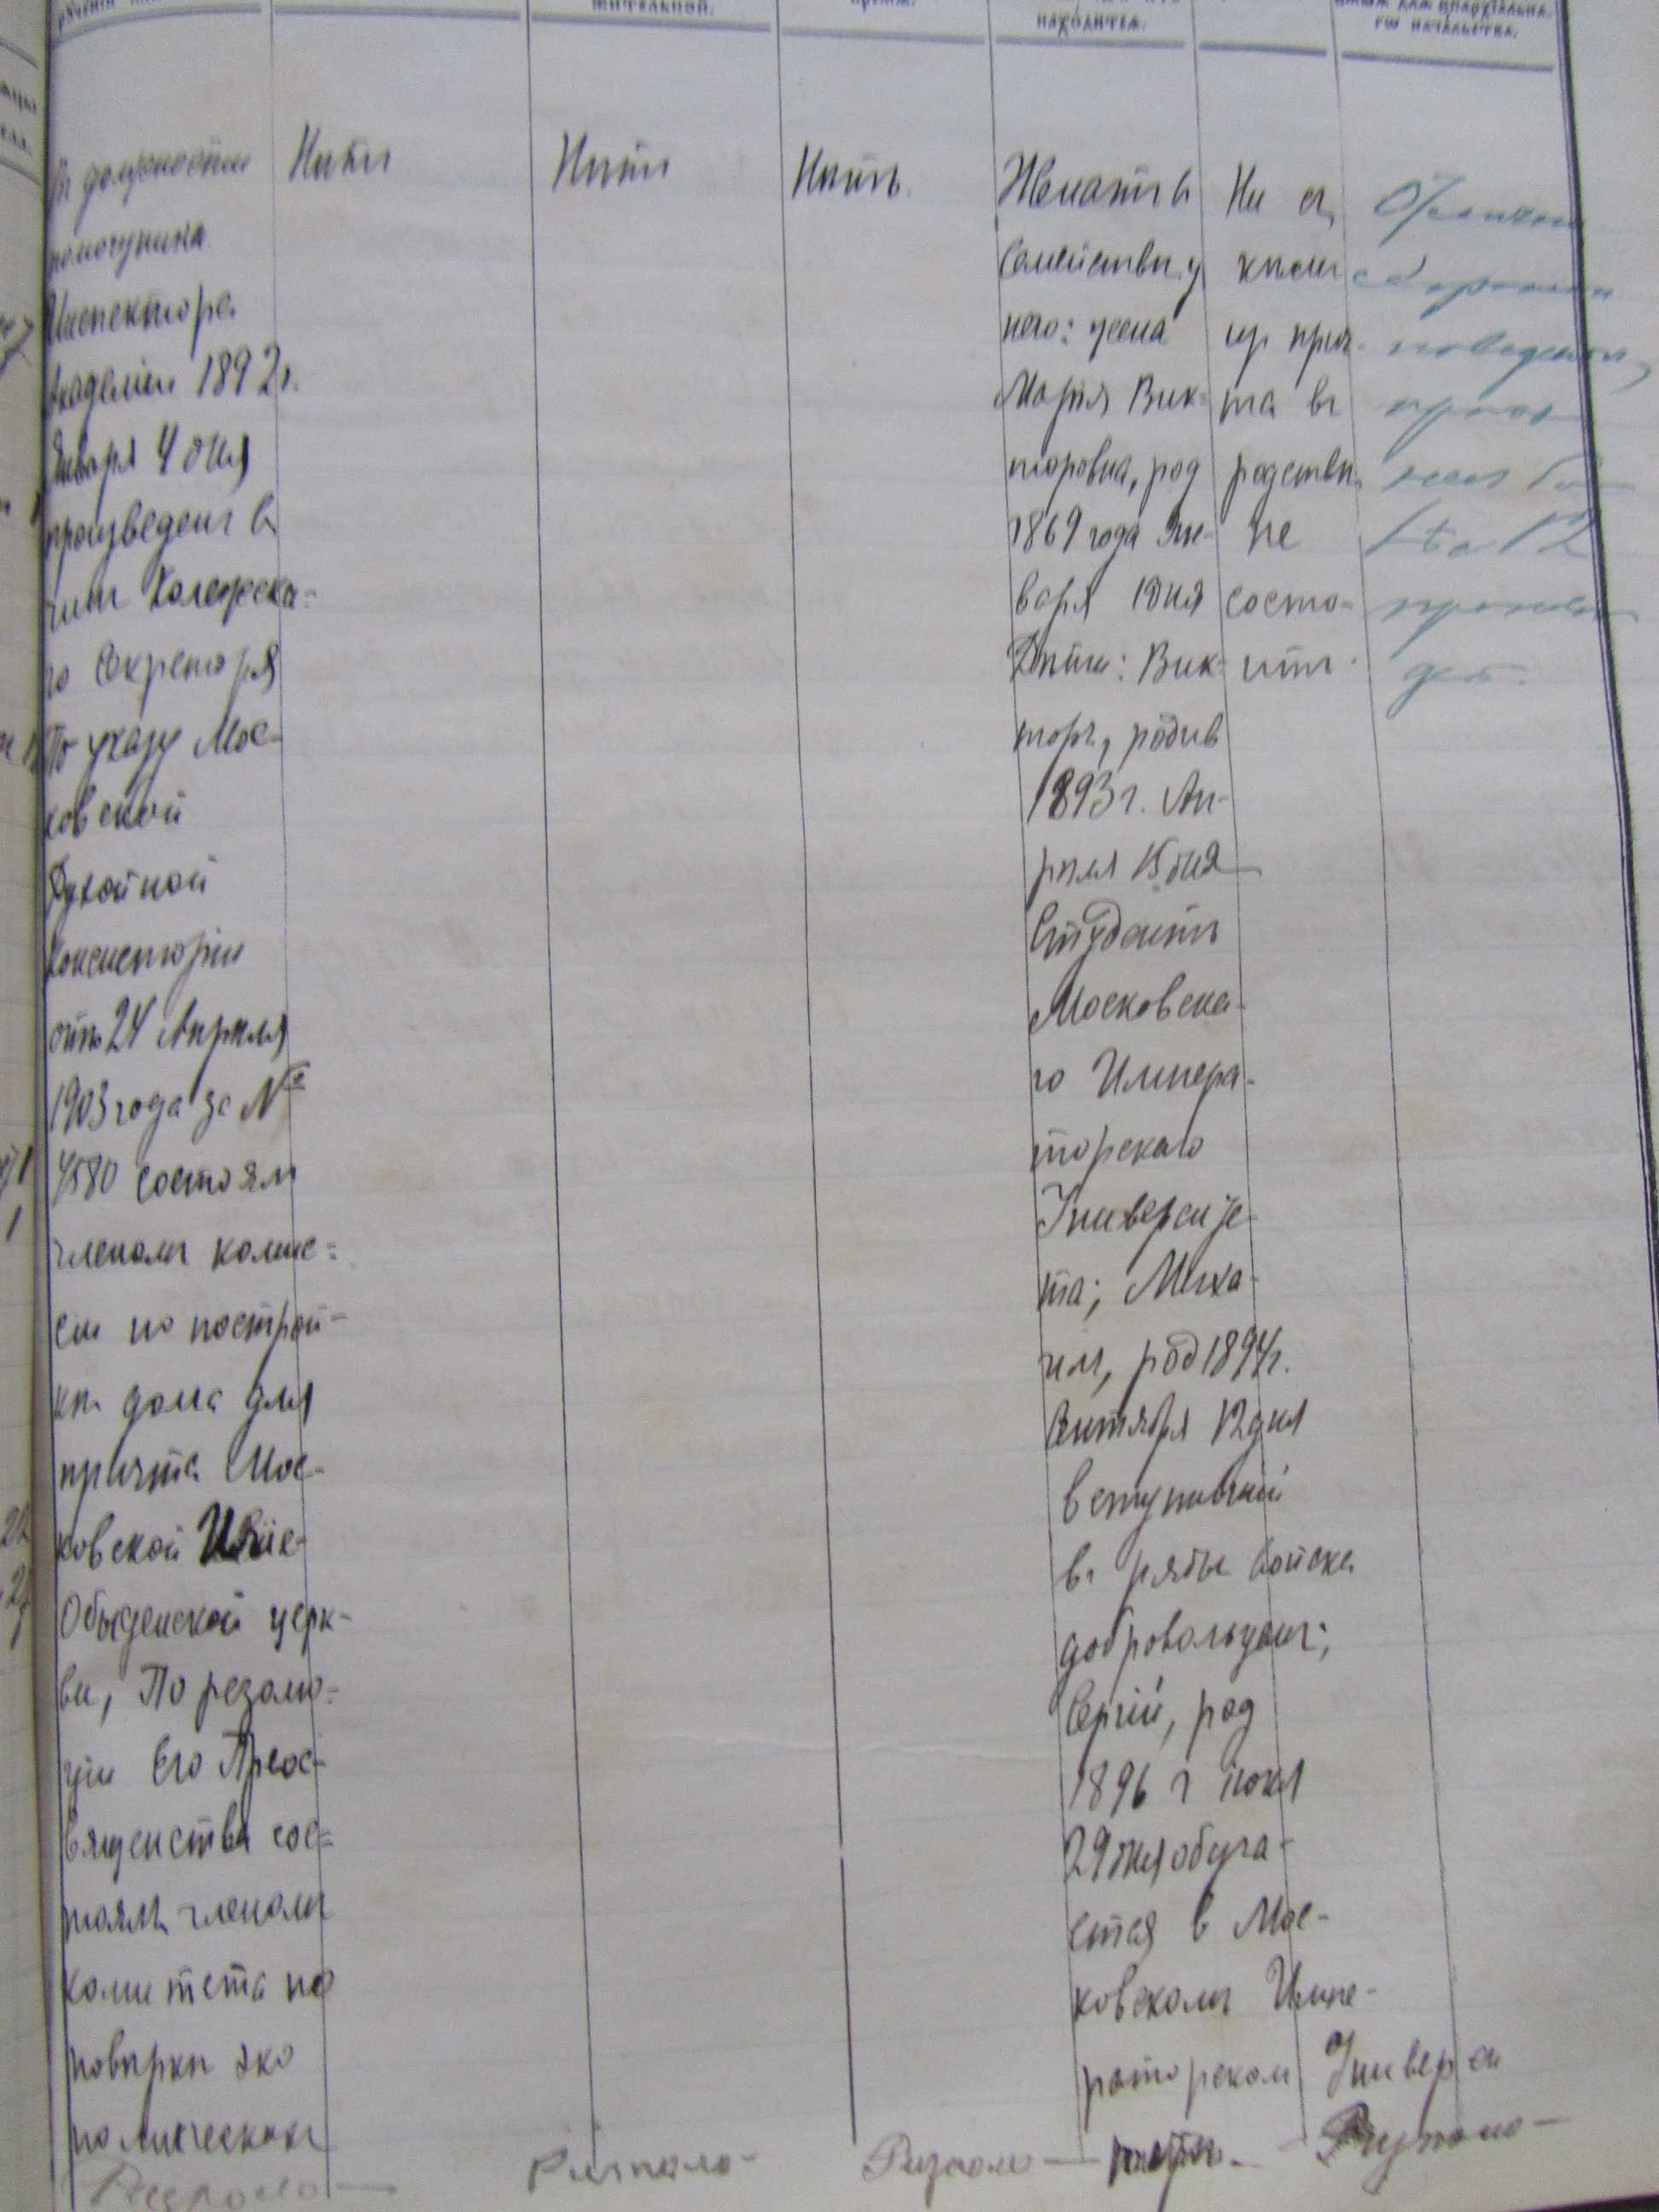 жительной.
находится.
го начальства.
Въ должности
помощника
Инспектора
Академіи 1892 г.
Января 4 дня
произведенъ въ
чинъ Коллежска=
го Секретаря
По указу Мос-
ковской
Духовной
Консисторіи
отъ 24 Апрѣля
1903 года за №
4580 состоялъ
членомъ комис=
сіи по построй=
кѣ дома для
причта Мос-
ковской Илiе-
Обыденской церк-
ви, По резолю=
ціи Его Преос-
вященства сос=
тоялъ членомъ
комитета по
повѣрки эко
номическихъ
Нѣтъ
Нѣтъ
Нѣтъ.
Женатъ въ
Семействѣ у
него: жена
Марія Вик-
торовна, род
1869 года Ян-
варя 1 дня
Дѣти: Вик-
торъ, родив
1893 г. Ап-
рѣля 15 дня
Студентъ
Московска-
го Импера-
торскаго
Университе-
та; Миха-
илъ, род 1894 г.
Сентября 12 дня
вступившій
въ ряды войска
добровольцемъ;
Сергій, род
1896 г
29 дня обуча-
ется в Мос-
ковскомъ Импе-
раторском Универси
тетѣ.
Ни съ
кѣмъ
изъ прич-
та въ
родствѣ
не
состо-
итъ.
поведенія,